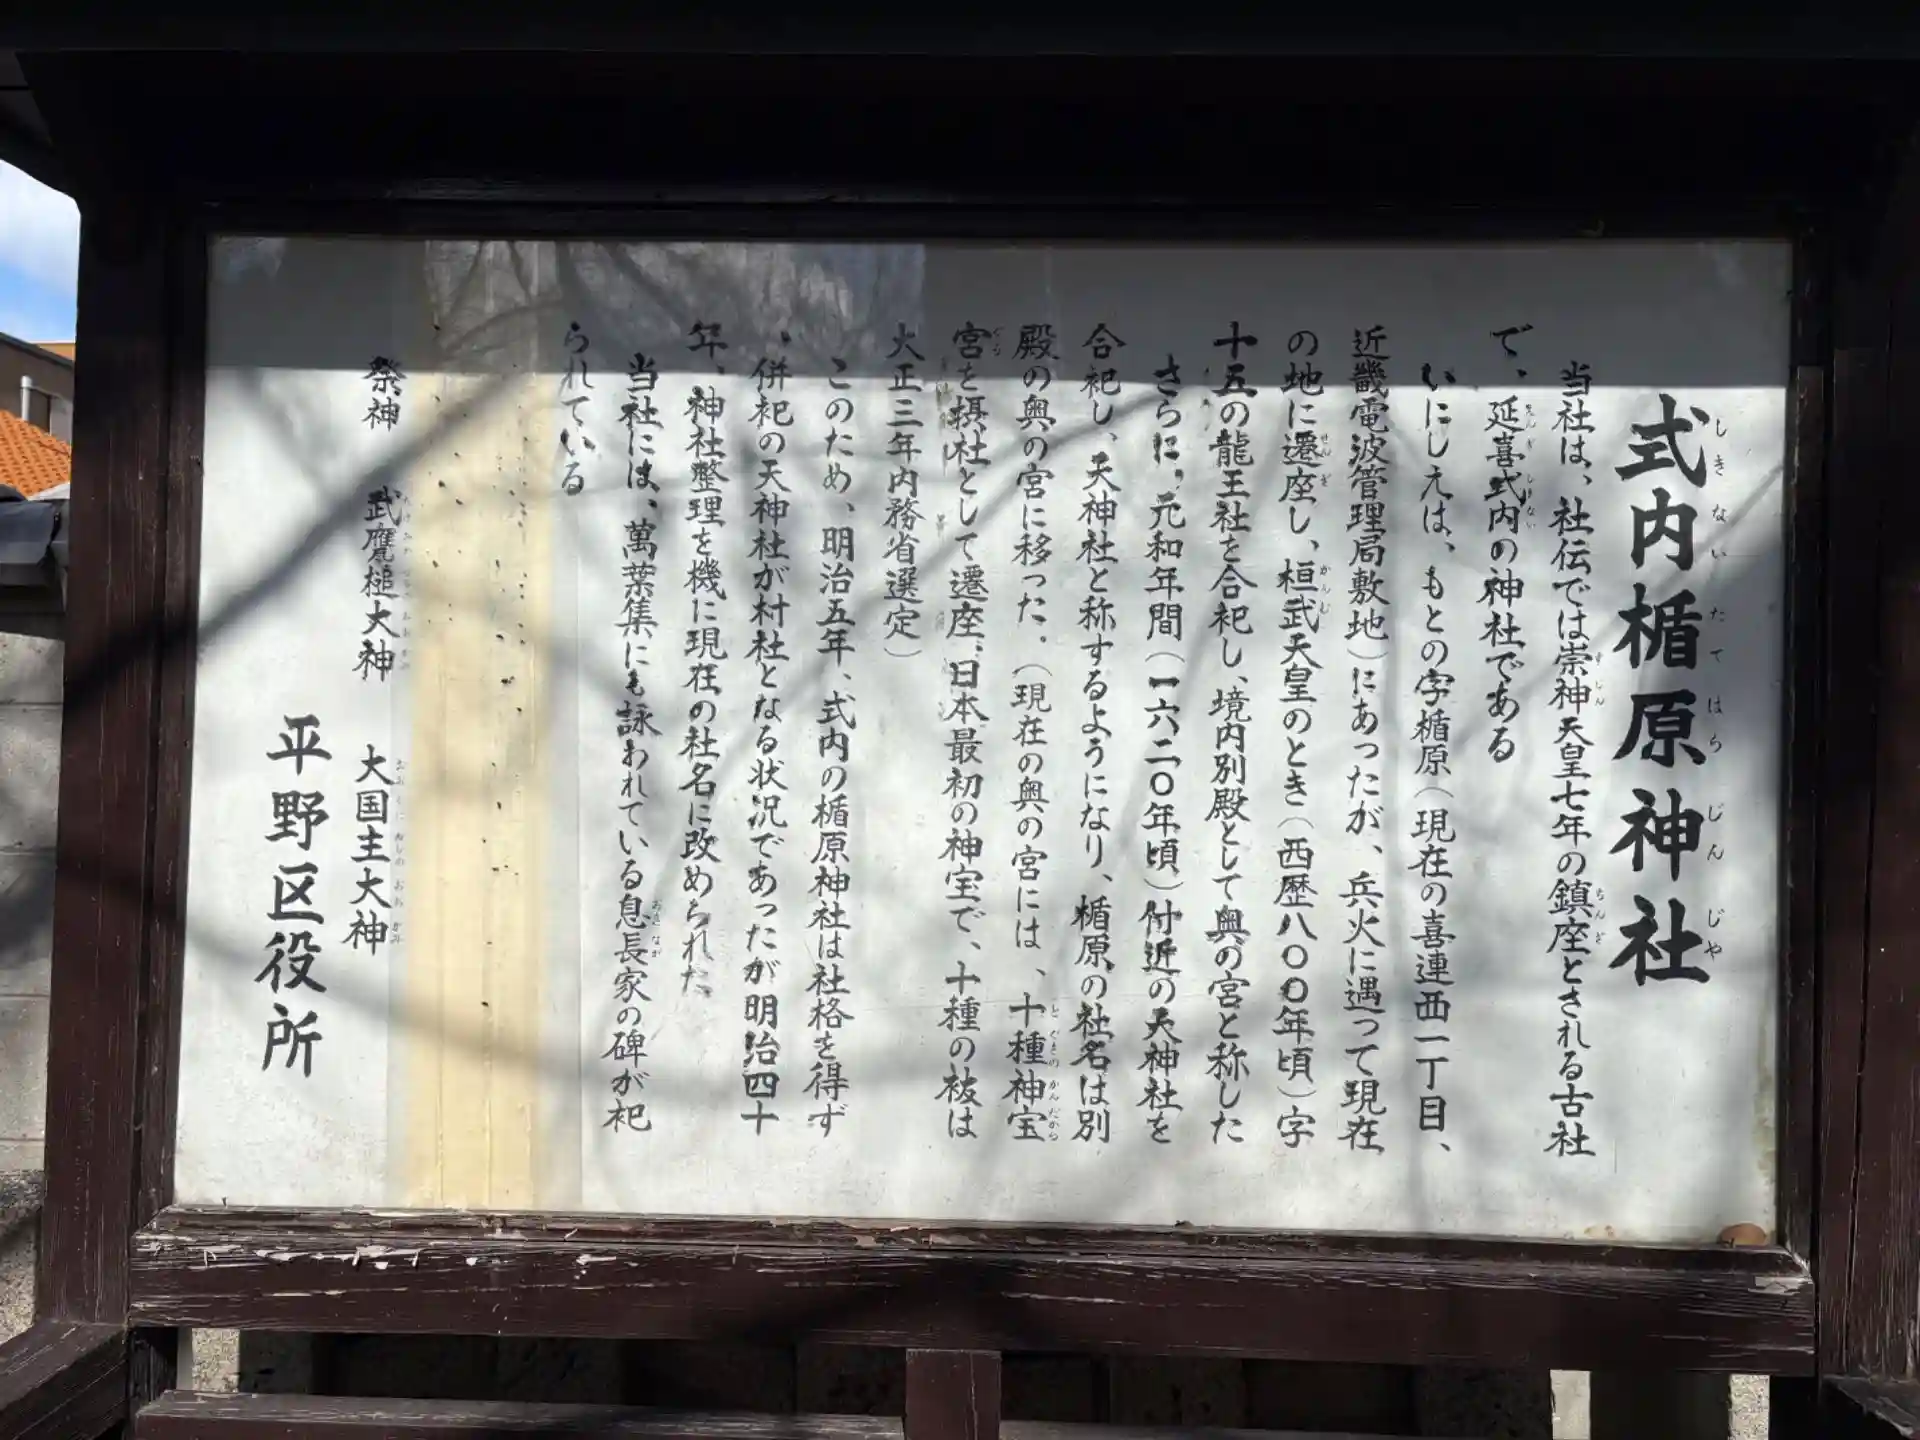 式内楯原神社
しきないたてはらじんじゃ
当社は、社伝では崇神天皇七年の鎮座とされる古社
すじん
ちんざ
で、延喜式内の神社である
えんぎしきない
いにしえは、もとの字楯原（現在の喜連西一丁目、
近畿電波管理局敷地）にあったが、兵火に遇って現在
の地に遷座し、桓武天皇のとき（西歴八〇〇年頃）字
せんざ
かんむ
十五の龍王社を合祀し、境内別殿として奥の宮と称した
さらに、元和年間（一六二〇年頃）付近の天神社を
合祀し、天神社と称するようになり、楯原の社名は別
殿の奥の宮に移った。（現在の奥の宮には、十種神宝
とくさのかんだから
宮を摂社として遷座、日本最初の神宝で、十種の祓は
大正三年内務省選定）
このため、明治五年、式内の楯原神社は社格を得ず
、併祀の天神社が村社となる状況であったが明治四十
年、神社整理を機に現在の社名に改められた
当社には、萬葉集にも詠われている息長家の碑が祀
おきなが
られている
祭神　武甕槌大神　大国主大神
おおくにぬしのおおかみ
平野区役所